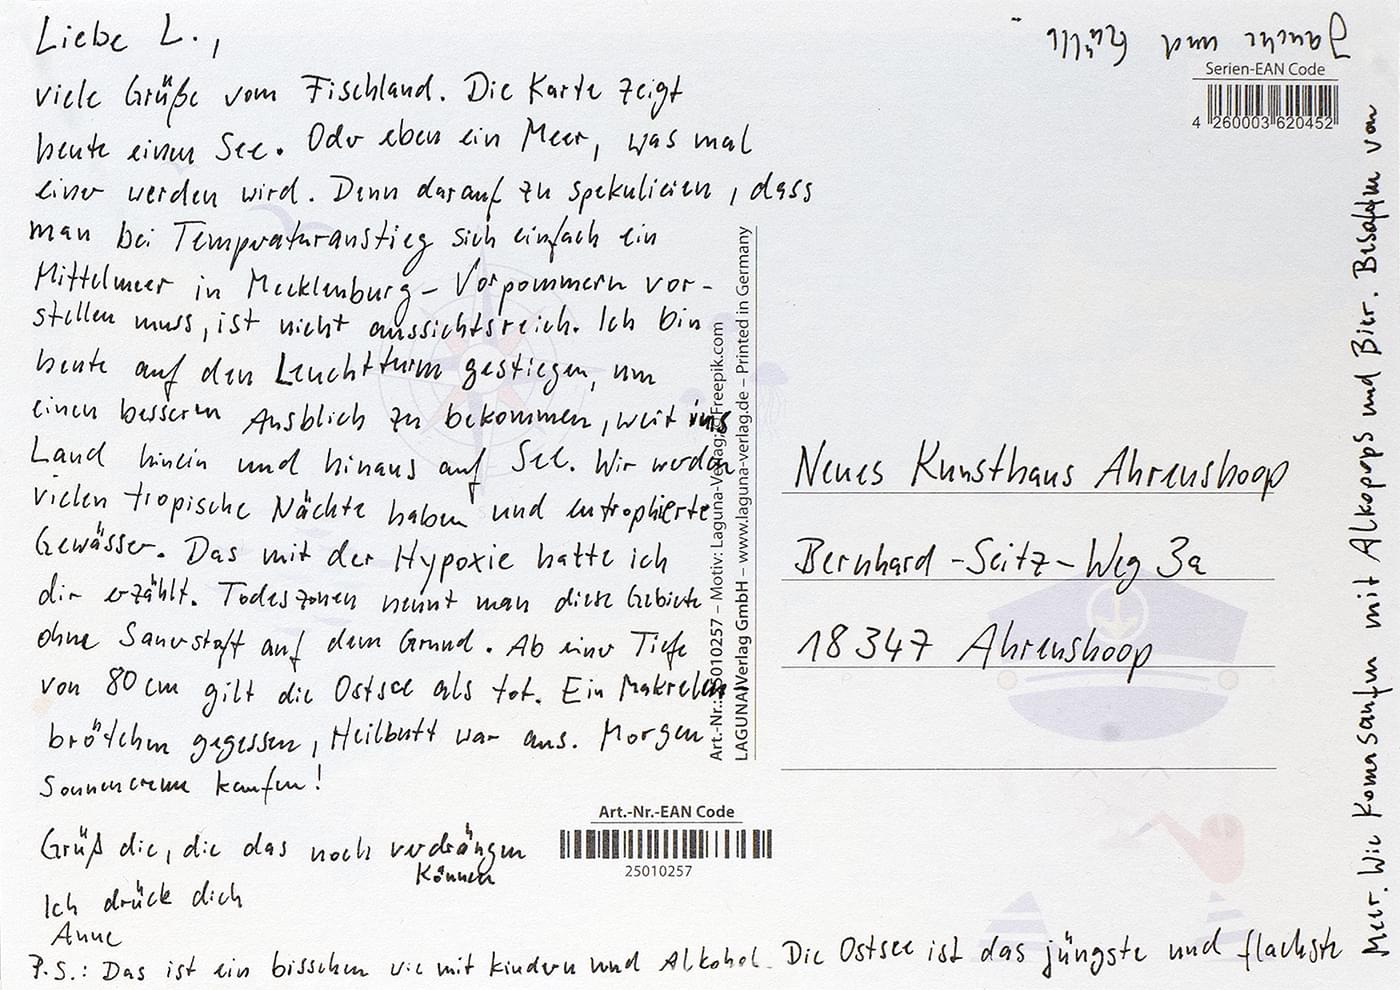 Liebe L.,
viele Grüße vom Fischland. Die Karte zeigt
heute einen See. Oder eben ein Meer, was mal
einer werden wird. Denn darauf zu spekulieren, dass
man bei Temperaturanstieg sich einfach ein
Mittelmeer in Mecklenburg-Vorpommern vor-
stellen muss, ist nicht aussichtsreich. Ich bin
heute auf den Leuchtturm gestiegen, um
einen besseren Ausblick zu bekommen, weit ins
Land hinein und hinaus auf See. Wir werden
vielen tropische Nächte haben und eutrophierte
Gewässer. Das mit der Hypoxie hatte ich
dir erzählt. Todeszonen nennt man diese Gebiete
ohne Sauerstoff auf dem Grund. Ab einer Tiefe
von 80 cm gilt die Ostsee als tot. Ein Makrelen
brötchen gegessen, Heilbutt war aus. Morgen
Sonnencreme kaufen!
Grüß die, die das noch verdrängen
können
Ich drück dich
Anne
P.S.: Das ist ein bisschen wie mit Kindern und Alkohol. Die Ostsee ist das jüngste und flachste
Meer. Wie Komasaufen mit Alkopops und Bier. Besoffen von
Jauche und Gülle.
Serien-EAN Code
4 260003 620452
Art.-Nr.: 25010257 – Motiv: Laguna-Verlag; Freepik.com
LAGUNA Verlag GmbH – www.laguna-verlag.de – Printed in Germany
Neues Kunsthaus Ahrenshoop
Bernhard-Seitz-Weg 3a
18347 Ahrenshoop
Art.-Nr.-EAN Code
25010257